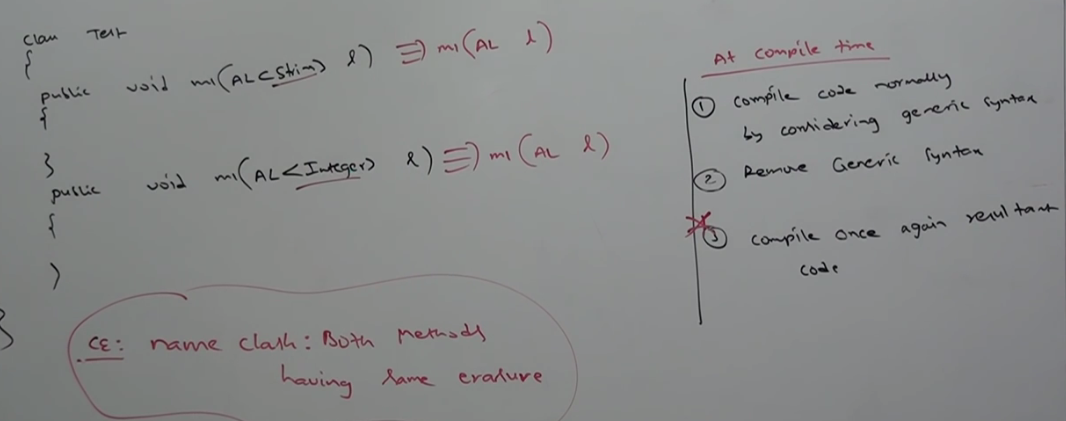 class Test
{
public void m1(AL<String> l) ≡) m1(AL l)
{
}
public void m1(AL<Integer> l) ≡) m1(AL l)
{
}
}
CE: name clash: Both methods
having same erasure
At compile time
① compile code normally
by considering generic syntax
② Remove Generic syntax
③ compile once again resultant
code